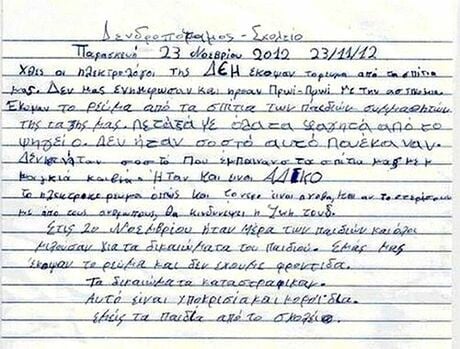 Δενδροπόταμος - Σχολείο
Παρασκευή 23 Νοεβρίου 2012 23/11/12
Χθες οι ηλεκτρολόγοι της ΔΕΗ έκοψαν το ρεμα από τα σπίτια
μας. Δεν μας ενημέρωσαν και ήρθαν πρωί-πρωί με την αστυνομία
Έκοψαν το ρεύμα από τα σπίτια των παιδιών συμμαθητών
της τάξης μας. Πέταξαμε όλα τα φαγητά από το
ψηγείο. Δεν ήταν σωστό αυτό που έκαναν.
Δεν ήταν σοστό που έμπαιναν στα σπίτια μας με
μαγκιά και βία. Ήταν και είναι ΑΔΙΚΟ
Το ηλεκτρικό ρεύμα όπως και το νερό είναι αγαθά και αν το στερήσουμε
από τους ανθρώπους θα κινδυνέψει η ζωή τους.
Στις 20 Νοεμβρίου ήταν μέρα των παιδιών και όλοι
μιλούσαν για τα δικαιώματα του παιδιού. Εμάς μας
έκοψαν το ρεύμα και δεν έχουμε φροντίδα.
Τα δικαιώματα καταστράφηκαν.
Αυτό είναι υποκρισία και κοροϊδία.
εμείς τα παιδιά από το σχολείο.